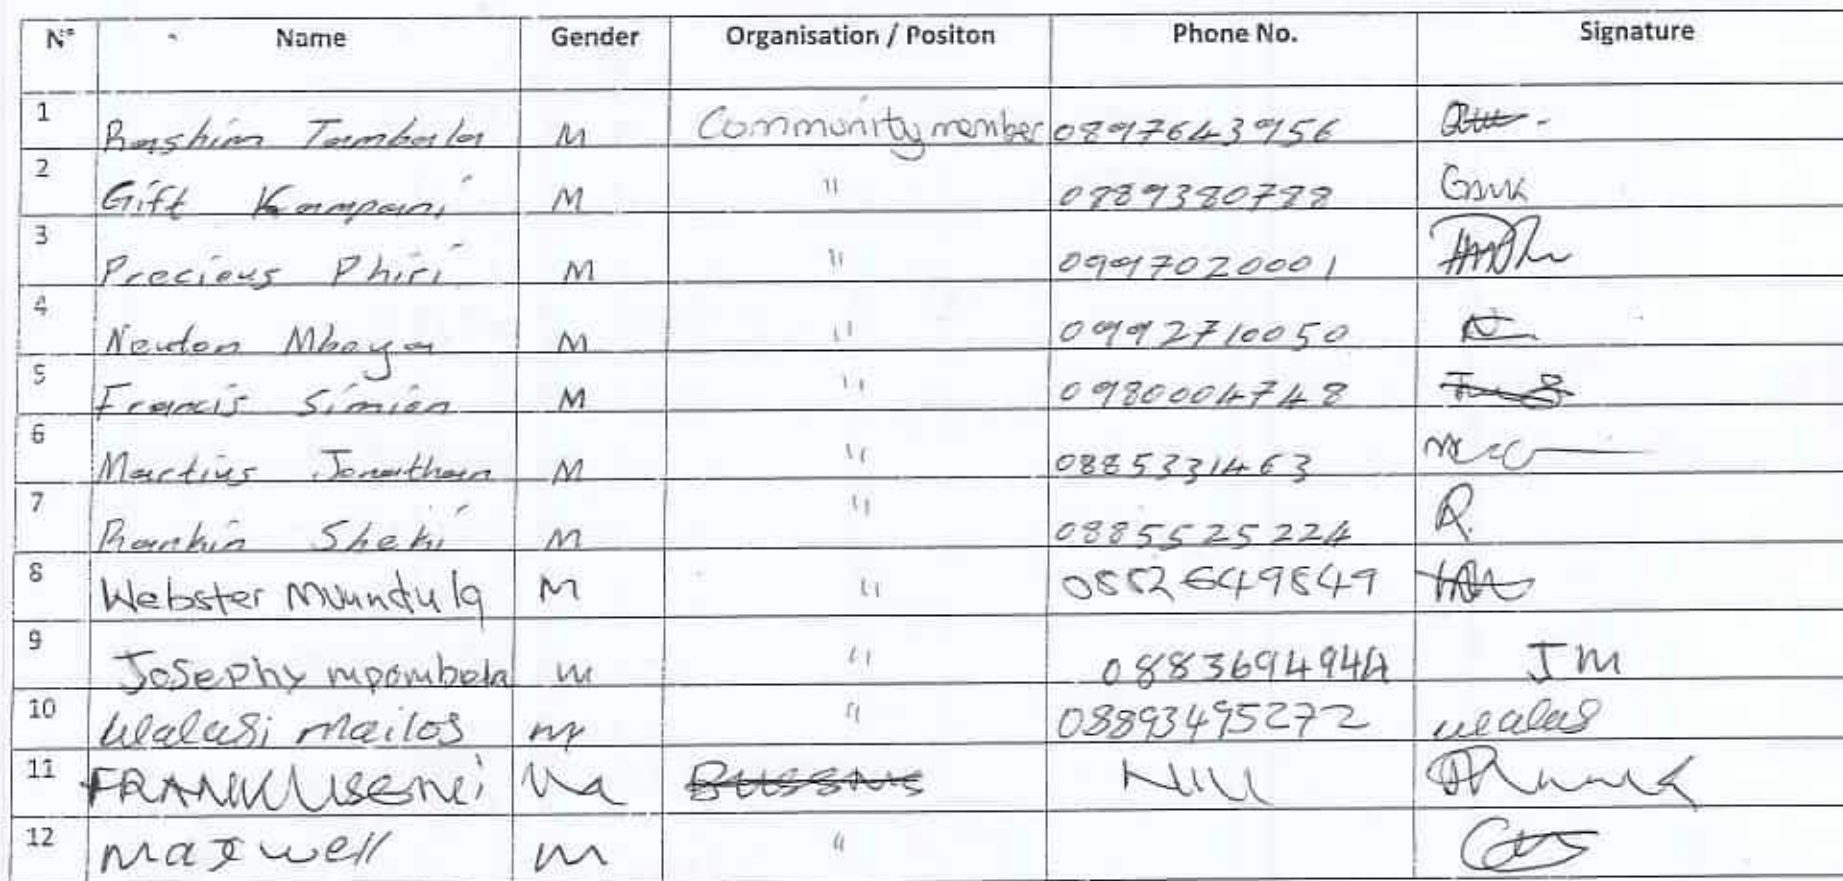 N° Name Gender Organisation / Positon Phone No. Signature
1 Rashim Tambala M Community member 0897643956
2 Gift Kampani M " 0889380788 GMK
3 Precious Phiri M " 0997020001
4 Newton Mbaya M " 0992710050
5 Francis Simion M " 0980004748
6 Martius Jonathan M " 0885331463
7 Rankin Sheki M " 0885525224 R.
8 Webster M " 0882649849
9 Josephy mpombela m " 0883694944 JM
10 Walasi Mailos m " 08893495272 walas
11 FRANK Nill
12 maxwell m "